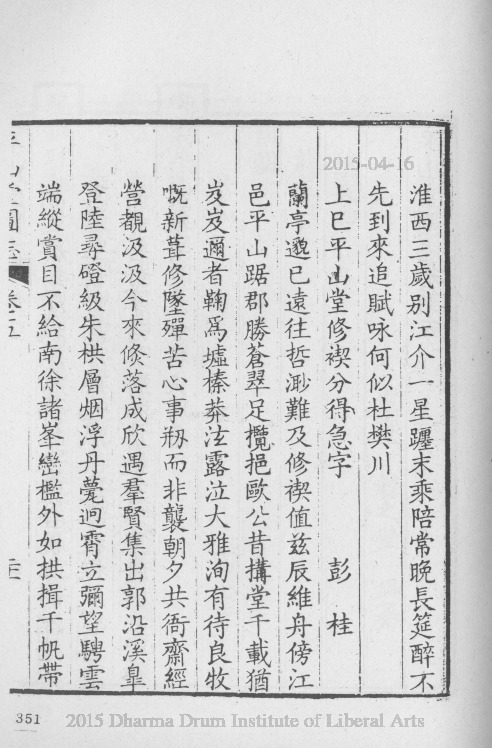 2015-04-16
淮西三歲别江介一星躔末乘陪常晚長筵醉不
先到來追賦咏何似杜樊川
上巳平山堂修禊分得急字 彭桂
蘭亭邈已遠往哲渺難及修禊值兹辰維舟傍江
邑平山踞郡勝蒼翠足攬挹歐公昔搆堂千載猶
岌岌邇者鞠爲墟榛莽泫露泣大雅洵有待良牧
嘅新葺修墜殫苦心事刱而非襲朝夕共衙齋經
營覩汲汲今來倐落成欣遇羣賢集出郭沿溪皐
登陸尋磴級朱栱層烟浮丹甍迥霄立彌望騁雲
端縱賞目不給南徐諸峯巒檻外如拱揖千帆帶
平山堂圖志 卷十五
351
2015 Dharma Drum Institute of Liberal Arts